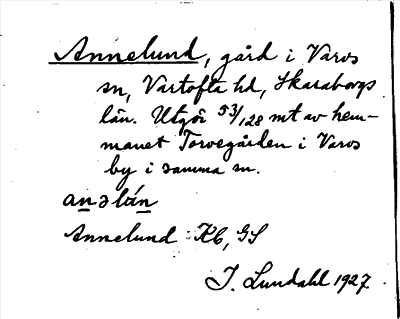 Annelund, gård i Varvs
sn, Vartofta hd, Skaraborgs
län. Utgör 53/128 mt av hem-
manet Torvegården i Varvs
by i samma sn.
Annelund Kb, GS
I. Lundahl 1927